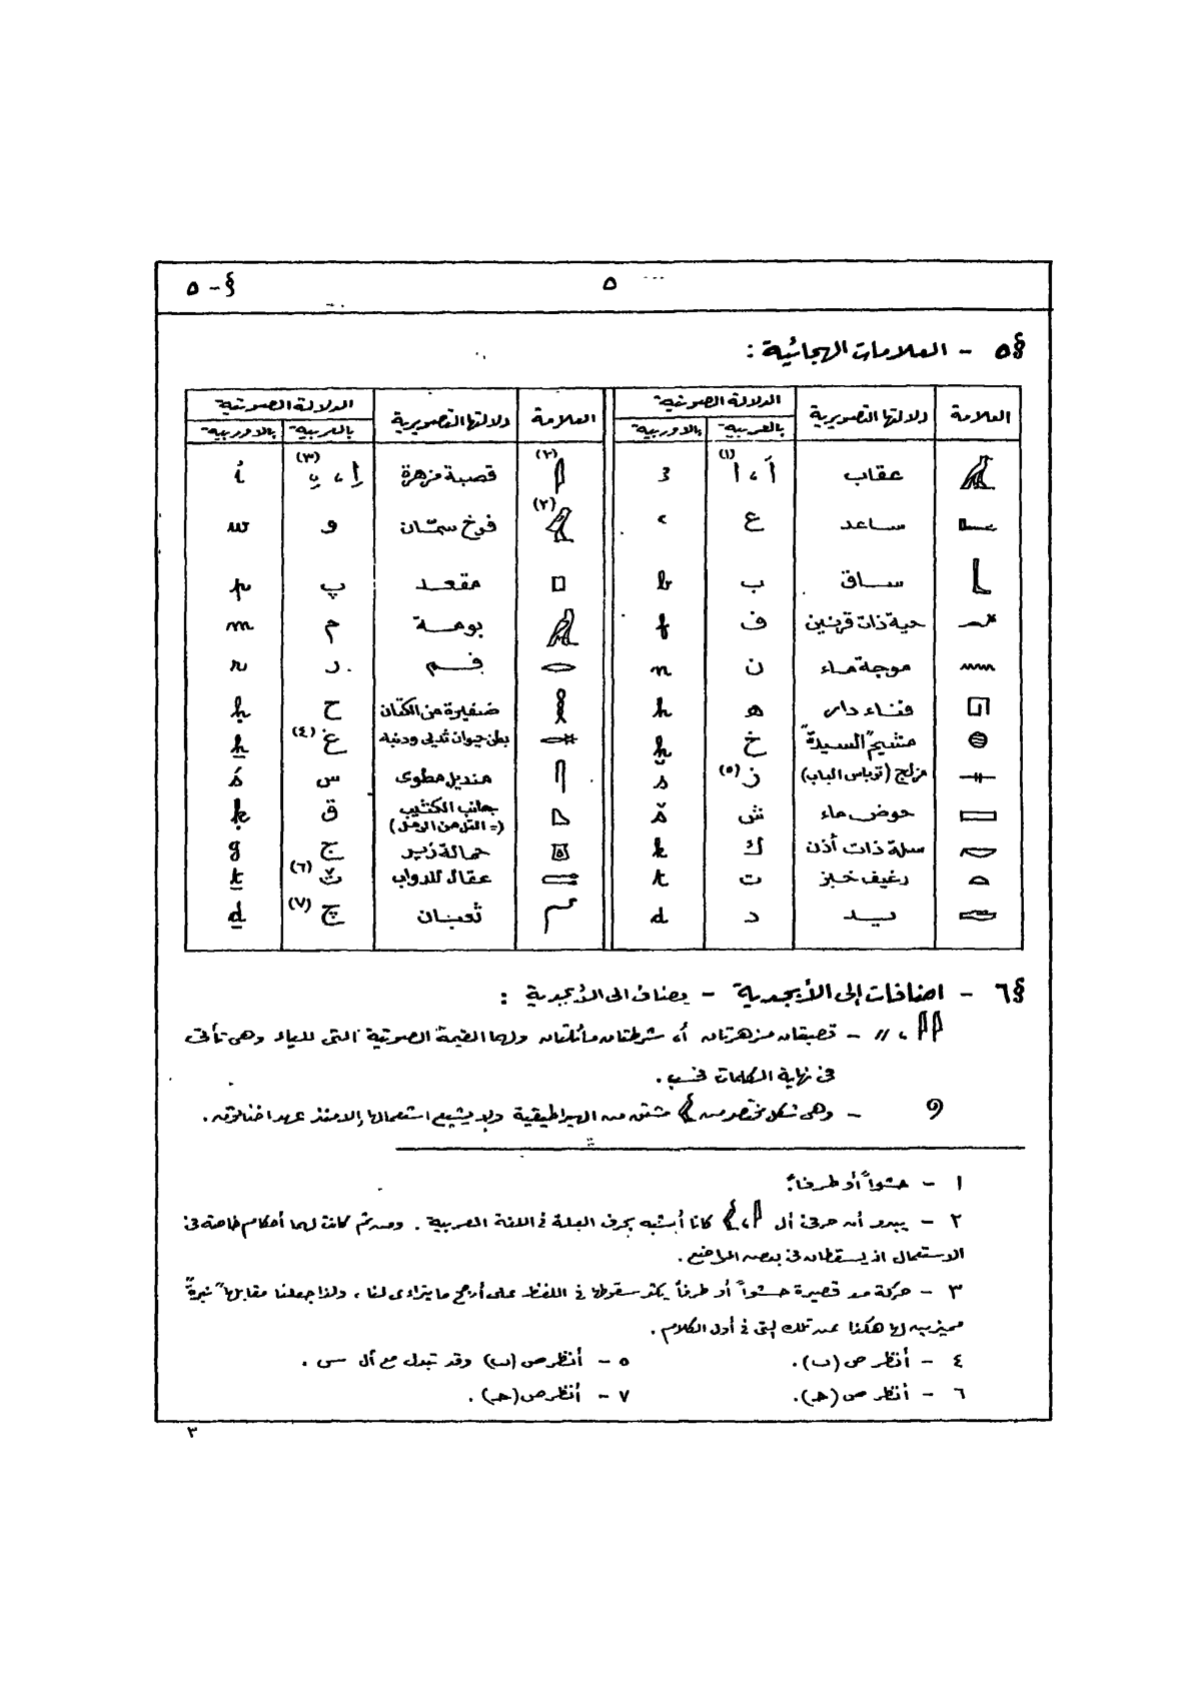 § - ٥
٥
§٥ - العلامات الهجائية :
العلامة | دلالتها التصويرية | الدلالة الصوتية | العلامة | دلالتها التصويرية | الدلالة الصوتية
بالعربية | بالاوربية | بالعربية | بالاوربية
عقاب | أ ، ا (١) | 3 | (٢) | قصبة مزهرة | إ ، ي (٣) | i
ساعد | ع | c | (٢) | فرخ سمّان | و | w
ساق | ب | b | مقعد | پ | p
حية ذات قرنين | ف | f | بومة | م | m
موجة ماء | ن | n | فم | ر | r
فناء دار | ه | h | ضفيرة من الكتان | ح | ḥ
مشيم "السيدة" | خ | ḫ | بطن حيوان ثديى وذنبه | غ (٤) | ẖ
مزلاج (ترباس الباب) | ز (٥) | s | منديل مطوى | س | ś
حوض ماء | ش | š | جانب الكثيب
(= التل من الرمل) | ق | ḳ
سلة ذات أذن | ك | k | حمالة زير | ج | g
رغيف خبز | ت | t | عقال للدواب | ث (٦) | ṯ
يد | د | d | ثعبان | چ (٧) | ḏ
§٦ - اضافات إلى الأبجدية - يضاف الى الأبجدية :
، // - قصبتان مزهرتان أو شرطتان مائلتان ولهما القيمة الصوتية التى للياء وهى تأتى
فى نهاية الكلمات فحسب .
- وهى شكل مختصر من مشتق من الهيراطيقية ولم يشيع استعمالها إلا منذ عهد اخناتون .
١ - حشواً أو طرفاً .
٢ - يبدو أن حرفى أل ، كانا أشبه بحرف العلة فى اللغة العربية . ومن ثم كانت لهما أحكام خاصة فى
الاستعمال اذ يسقطان فى بعض المواضع .
٣ - حركة مد قصيرة حشواً أو طرفاً يكثر سقوطها فى اللفظ على أرجح ما يتراءى لنا ، ولذا جعلنا مقابلها "نبرة"
مميزين لها هكذا عن تلك التى فى أول الكلام .
٤ - أنظر ص (ب) .
٥ - أنظر ص (ب) وقد تبدل مع أل سى .
٦ - أنظر ص (حـ) .
٧ - أنظر ص (حـ) .
٣